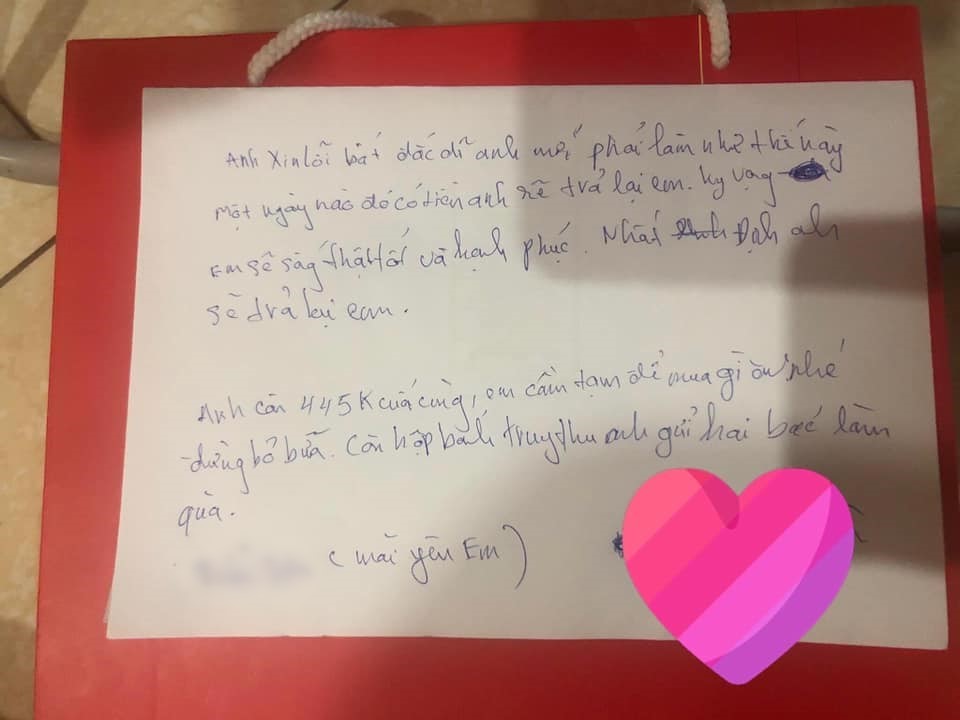 Anh Xin lỗi bất đắc dĩ anh mới phải làm như thế này
Một ngày nào đó có tiền anh sẽ trả lại em. hy vọng
Em sẽ sốg thật tốt và hạnh phúc. Nhất Địh anh
sẽ trả lại em.
Anh còn 445K cuối cùng, em cầm tạm để mua gì ăn nhé
đừng bỏ bữa. Còn hộp bánh trug thu anh gửi hai bác làm
quà.
(mãi yêu Em)